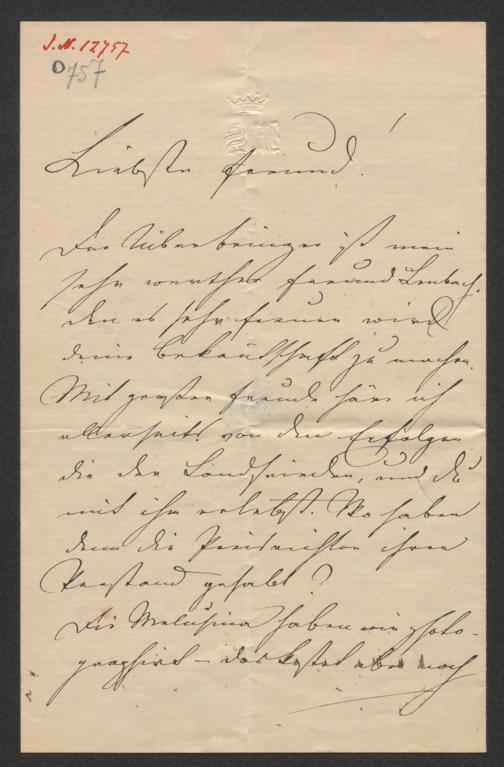 J.N. 12757
0757
Liebster Freund!
Der Ueberbringer ist mein
sehr werther Freund Lenbach,
den es sehr freuen wird
deine Bekanntschaft zu machen.
Mit großer Freude höre ich
allerseits von den Erfolgen
die der Landfrieden, und du
mit ihm erlebst. Wo haben
denn die Preisrichter ihren
Verstand gehabt?
Die Melusina haben wir photo-
graphirt – das kostet aber noch